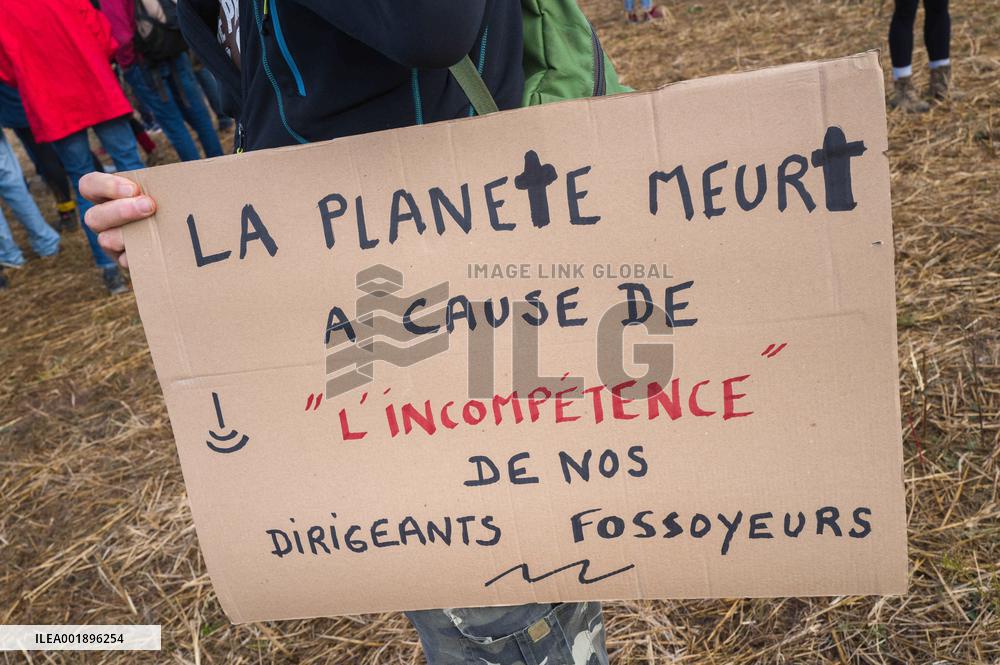 LA PLANETE MEURT
IMAGE LINK GLOBAL
ILG
A CAUSE DE
"L'INCOMPÉTENCE"
DE NOS
DIRIGEANTS FOSSOYEURS
ILEA001896254